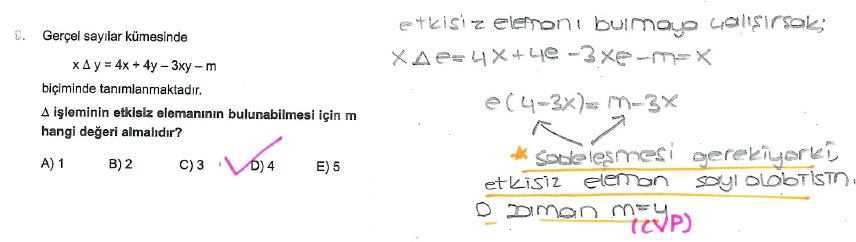 9. Gerçel sayılar kümesinde
x Δ y = 4x + 4y – 3xy – m
biçiminde tanımlanmaktadır.
Δ işleminin etkisiz elemanının bulunabilmesi için m
hangi değeri almalıdır?
A) 1 B) 2 C) 3 D) 4 E) 5
etkisiz elemanı bulmaya çalışırsak;
x Δ e = 4x + 4e - 3xe - m = x
e(4-3x) = m-3x
* sadeleşmesi gerekiyorki,
etkisiz eleman sayı olabilsin.
O zaman m=4
(CVP)